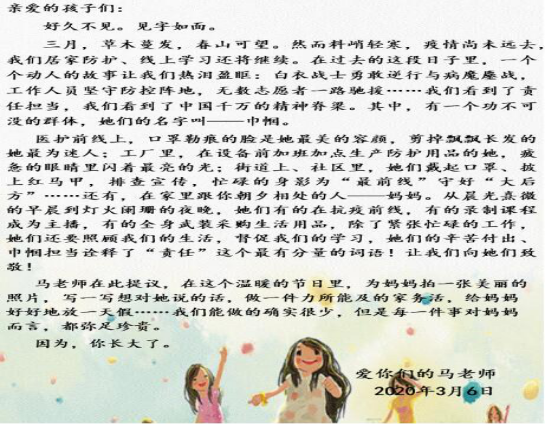 亲爱的孩子们：
好久不见。见字如面。
三月，草木蔓发，春山可望。然而料峭轻寒，疫情尚未远去，
我们居家防护、线上学习还将继续。在过去的这段日子里，一个
个动人的故事让我们热泪盈眶：白衣战士勇敢逆行与病魔鏖战，
工作人员坚守防控阵地，无数志愿者一路驰援……我们看到了责
任担当，我们看到了中国千万的精神脊梁。其中，有一个功不可
没的群体，她们的名字叫——巾帼。
医护前线上，口罩勒痕的脸是她最美的容颜，剪掉飘飘长发的
她最为迷人；工厂里，在设备前加班加点生产防护用品的她，疲
惫的眼睛里闪着最亮的光；街道上、社区里，她们戴起口罩、披
上红马甲，排查宣传，忙碌的身影为“最前线”守好“大后
方”……还有，在家里跟你朝夕相处的人——妈妈。从晨光熹微
的早晨到灯火阑珊的夜晚，她们有的在抗疫前线，有的录制课程
成为主播，有的全身武装采购生活用品，除了紧张忙碌的工作，
她们还要照顾我们的生活，督促我们的学习，她们的辛苦付出、
巾帼担当诠释了“责任”这个最有分量的词语！让我们向她们致
敬！
马老师在此提议，在这个温暖的节日里，为妈妈拍一张美丽的
照片，写一写想对她说的话，做一件力所能及的家务活，给妈妈
好好地放一天假……我们能做的确实很少，但是每一件事对妈妈
而言，都弥足珍贵。
因为，你长大了。
爱你们的马老师
2020年3月6日